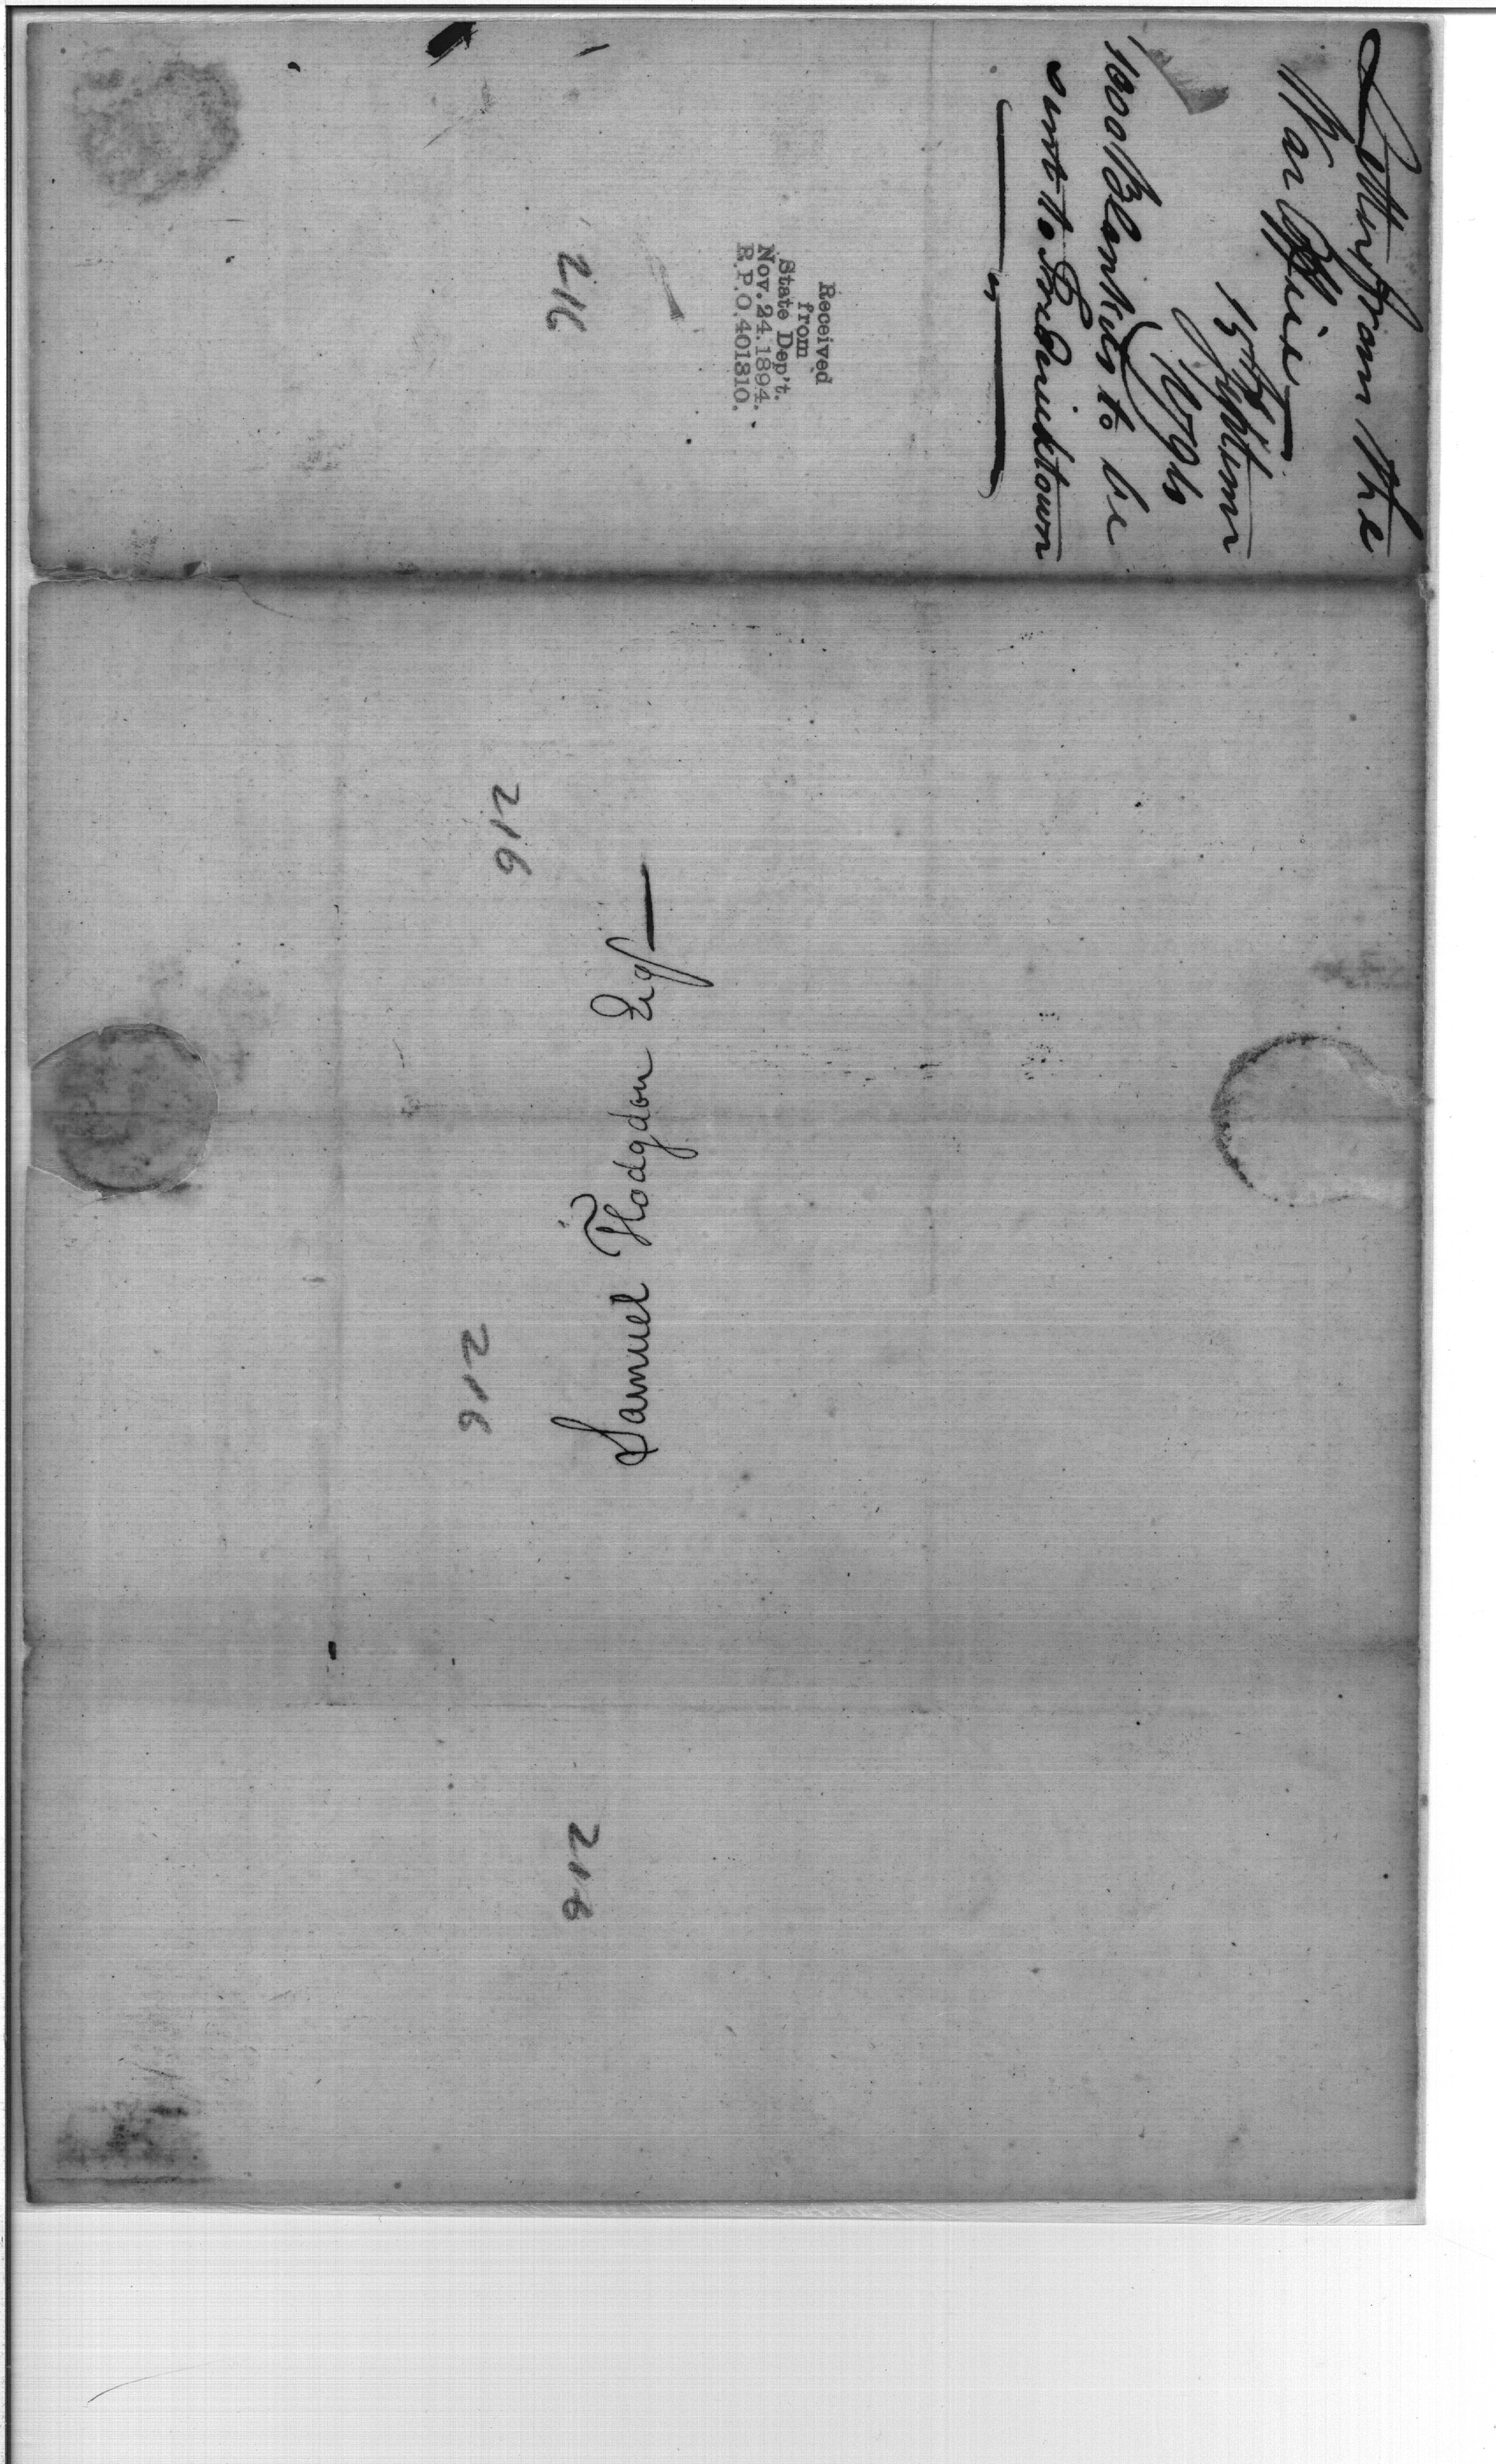 Letter from the
War Office
15th Septemr
1794
1000 Blankets to be
sent to Fredericktown
Received
from
State Dep't.
Nov. 24. 1894.
R.P.O. 401310.
216
216
Samuel Hodgdon Esqr
216
216